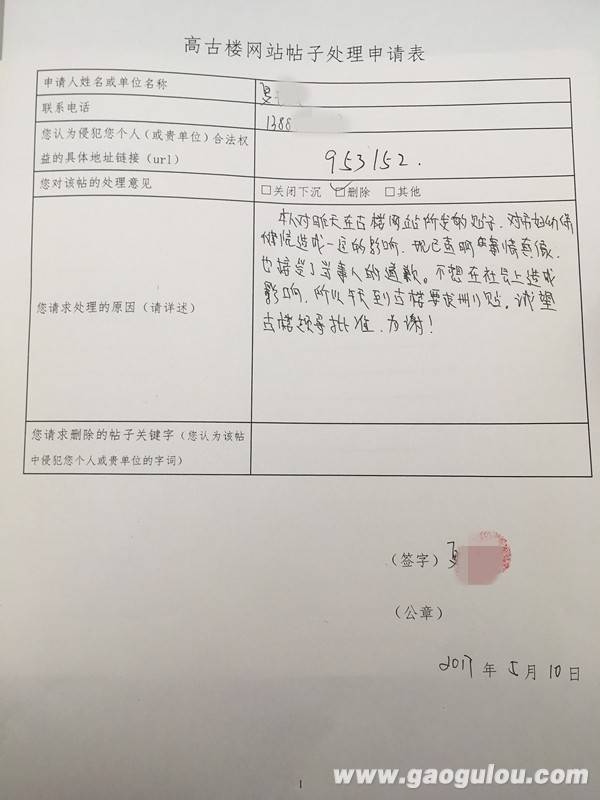 高古楼网站帖子处理申请表
申请人姓名或单位名称
夏
联系电话
1388
您认为侵犯您个人（或贵单位）合法权
益的具体地址链接（url）
953152.
您对该帖的处理意见
□关闭下沉 ☑删除 □其他
您请求处理的原因（请详述）
本人对昨天在古楼网站所发的帖子，对市妇幼保
健院造成一定的影响，现已查明事情真假，
也接受了当事人的道歉。不想在社会上造成
影响，所以今天到古楼要求删贴，诚望
古楼领导批准，为谢！
您请求删除的帖子关键字（您认为该帖
中侵犯您个人或贵单位的字词）
（签字）夏
（公章）
2017年5月10日
1
www.gaogulou.com